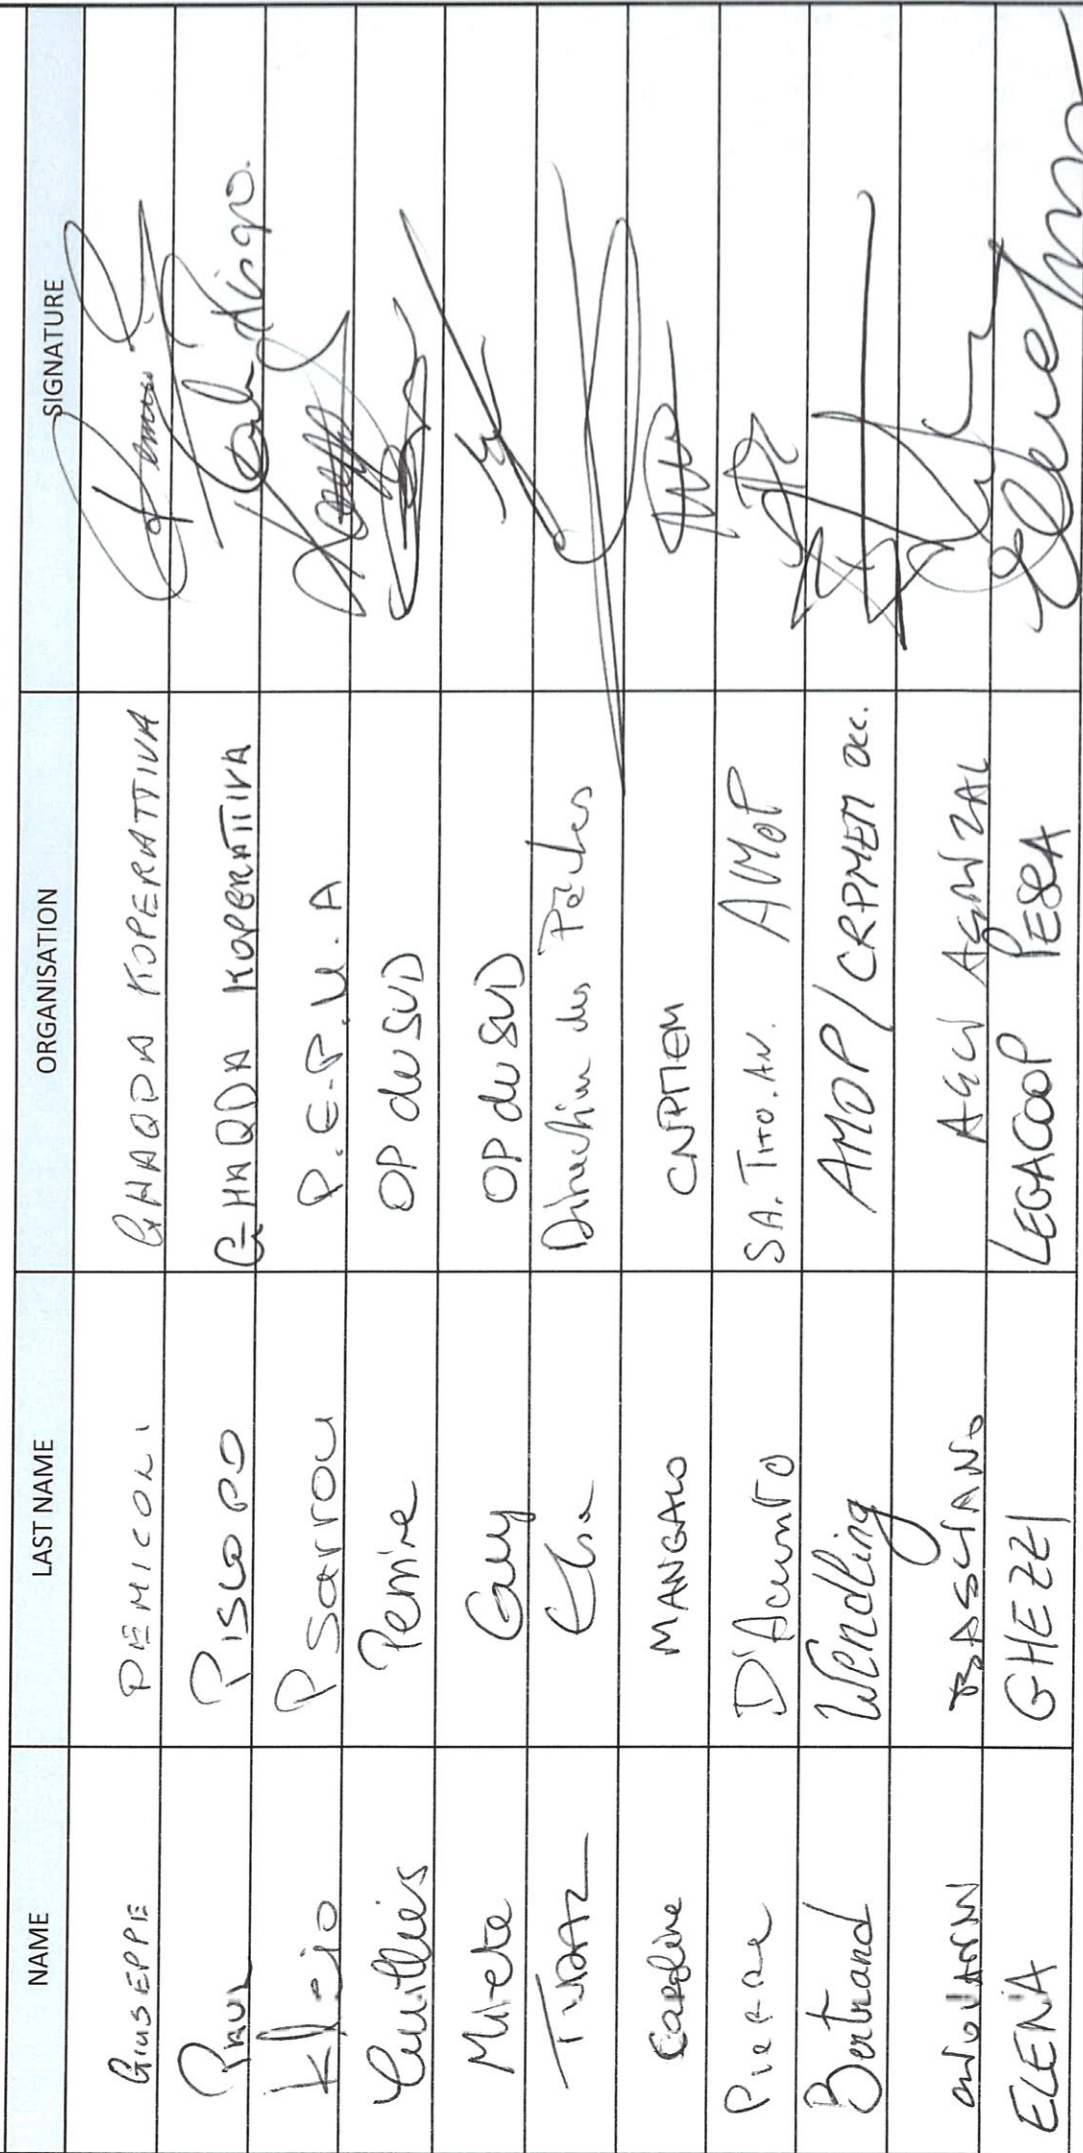 NAME LAST NAME ORGANISATION SIGNATURE
GIUSEPPE DEMICOLI GHAQDA KOPERATTIVA
PAUL PISCOPO GHAQDA KOPERATTIVA
Kleio Psarrou P.E.P.M.A
Perrine OP du SUD
Cuy OP du SUD
Elsa Direction des Pêches
Caroline MANGALO CNPMEM
Pierre D'Acunto SA.TITO.AN. AMOP
Bertrand Wendling AMOP/CRPMEM occ.
BASCIANO AGCI AGRITAL
ELENA GHEZZI LEGACOOP PESCA